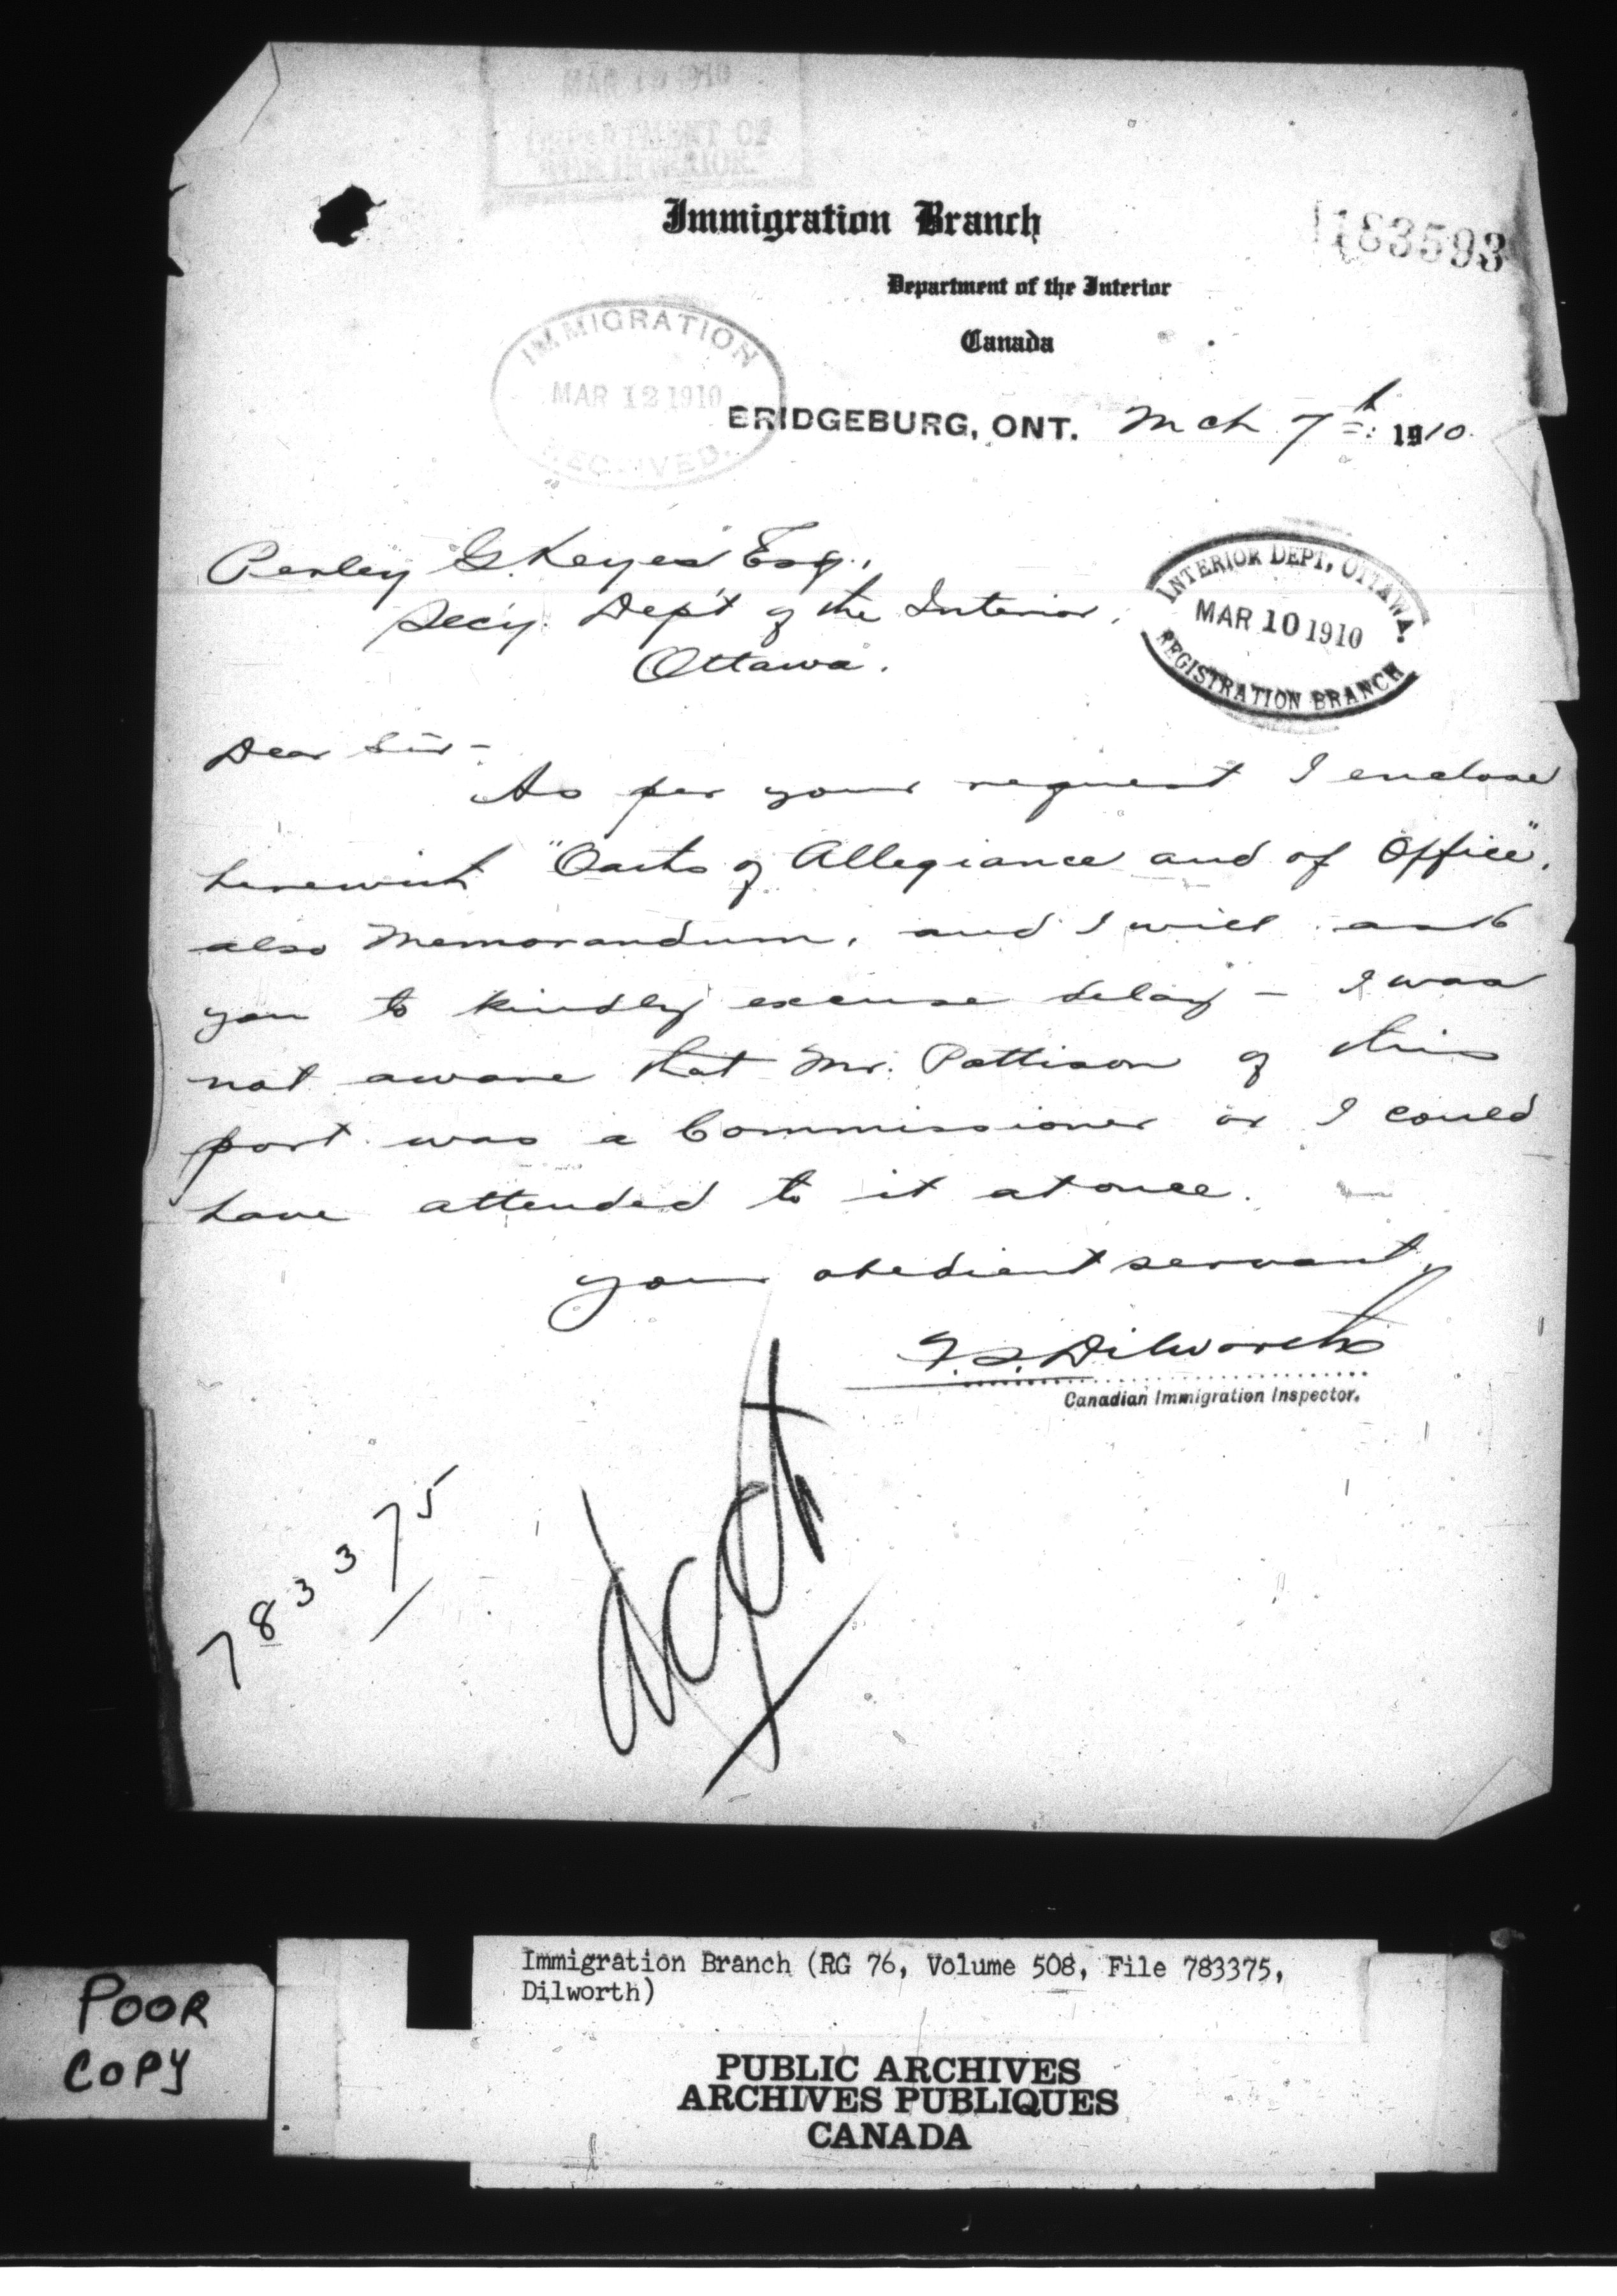 MAR 10 1910
DEPARTMENT OF
THE INTERIOR
Immigration Branch
1183593
Department of the Interior
Canada
IMMIGRATION
MAR 12 1910
RECEIVED.
BRIDGEBURG, ONT. Mch 7th 1910.
Perley G. Keyes Esq.,
Secy. Dep't of the Interior,
Ottawa.
INTERIOR DEPT, OTTAWA.
MAR 10 1910
REGISTRATION BRANCH
Dear Sir -
As per your request I enclose
herewith "Oaths of Allegiance and of Office",
also Memorandum, and I will ask
you to kindly excuse delay - I was
not aware that Mr. Pattison of this
port was a Commissioner or I could
have attended to it at once.
your obedient servant,
Dilworth
Canadian Immigration Inspector.
783375
POOR
COPY
Immigration Branch (RG 76, Volume 508, File 783375,
Dilworth)
PUBLIC ARCHIVES
ARCHIVES PUBLIQUES
CANADA